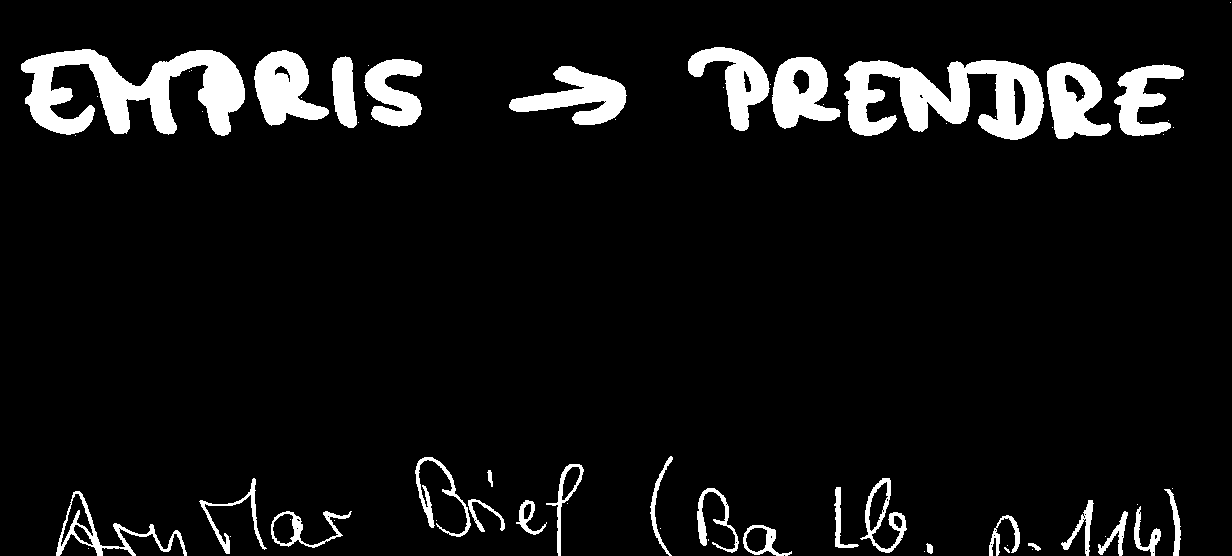 EMPRIS → PRENDRE
ArnMar Brief (Ba Lb. p. 114)